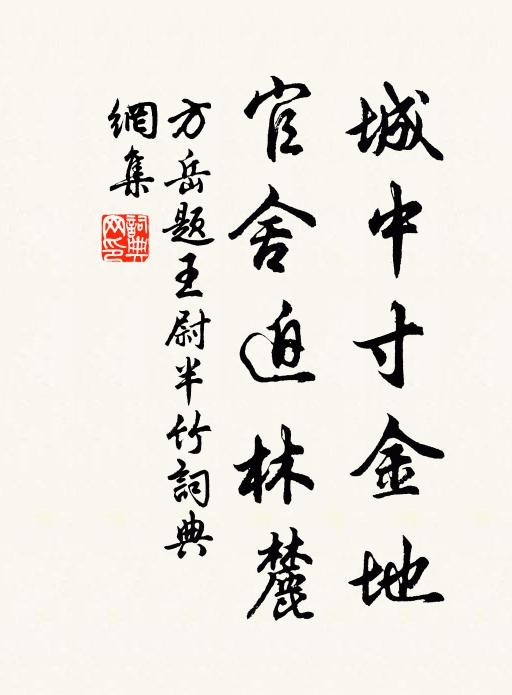 城中寸金地
官舍迫林麓
方岳題王尉半竹詞典
網集
詞典
网印